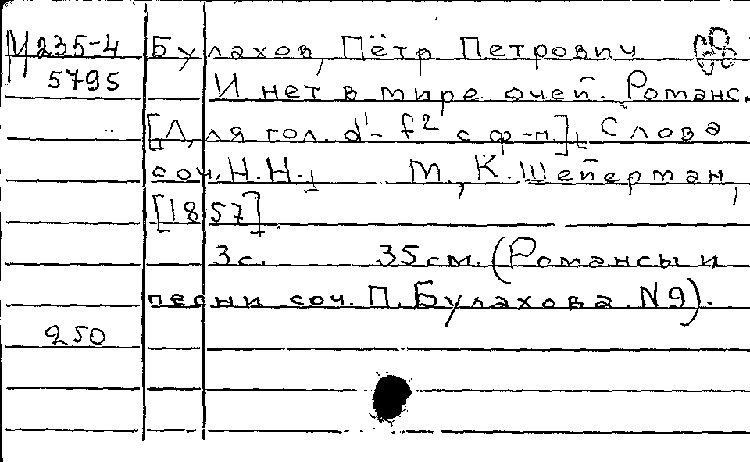 М 235-4 Булахов, Пётр Петрович
5795 И нет в мире очей. Романс.
[Для гол. d¹- f² с ф-п.]. Слова
соч. Н.Н. М., К. Шейерман,
[1857]
3с. 35см. (Романсы и
песни соч. П. Булахова. N9).
250